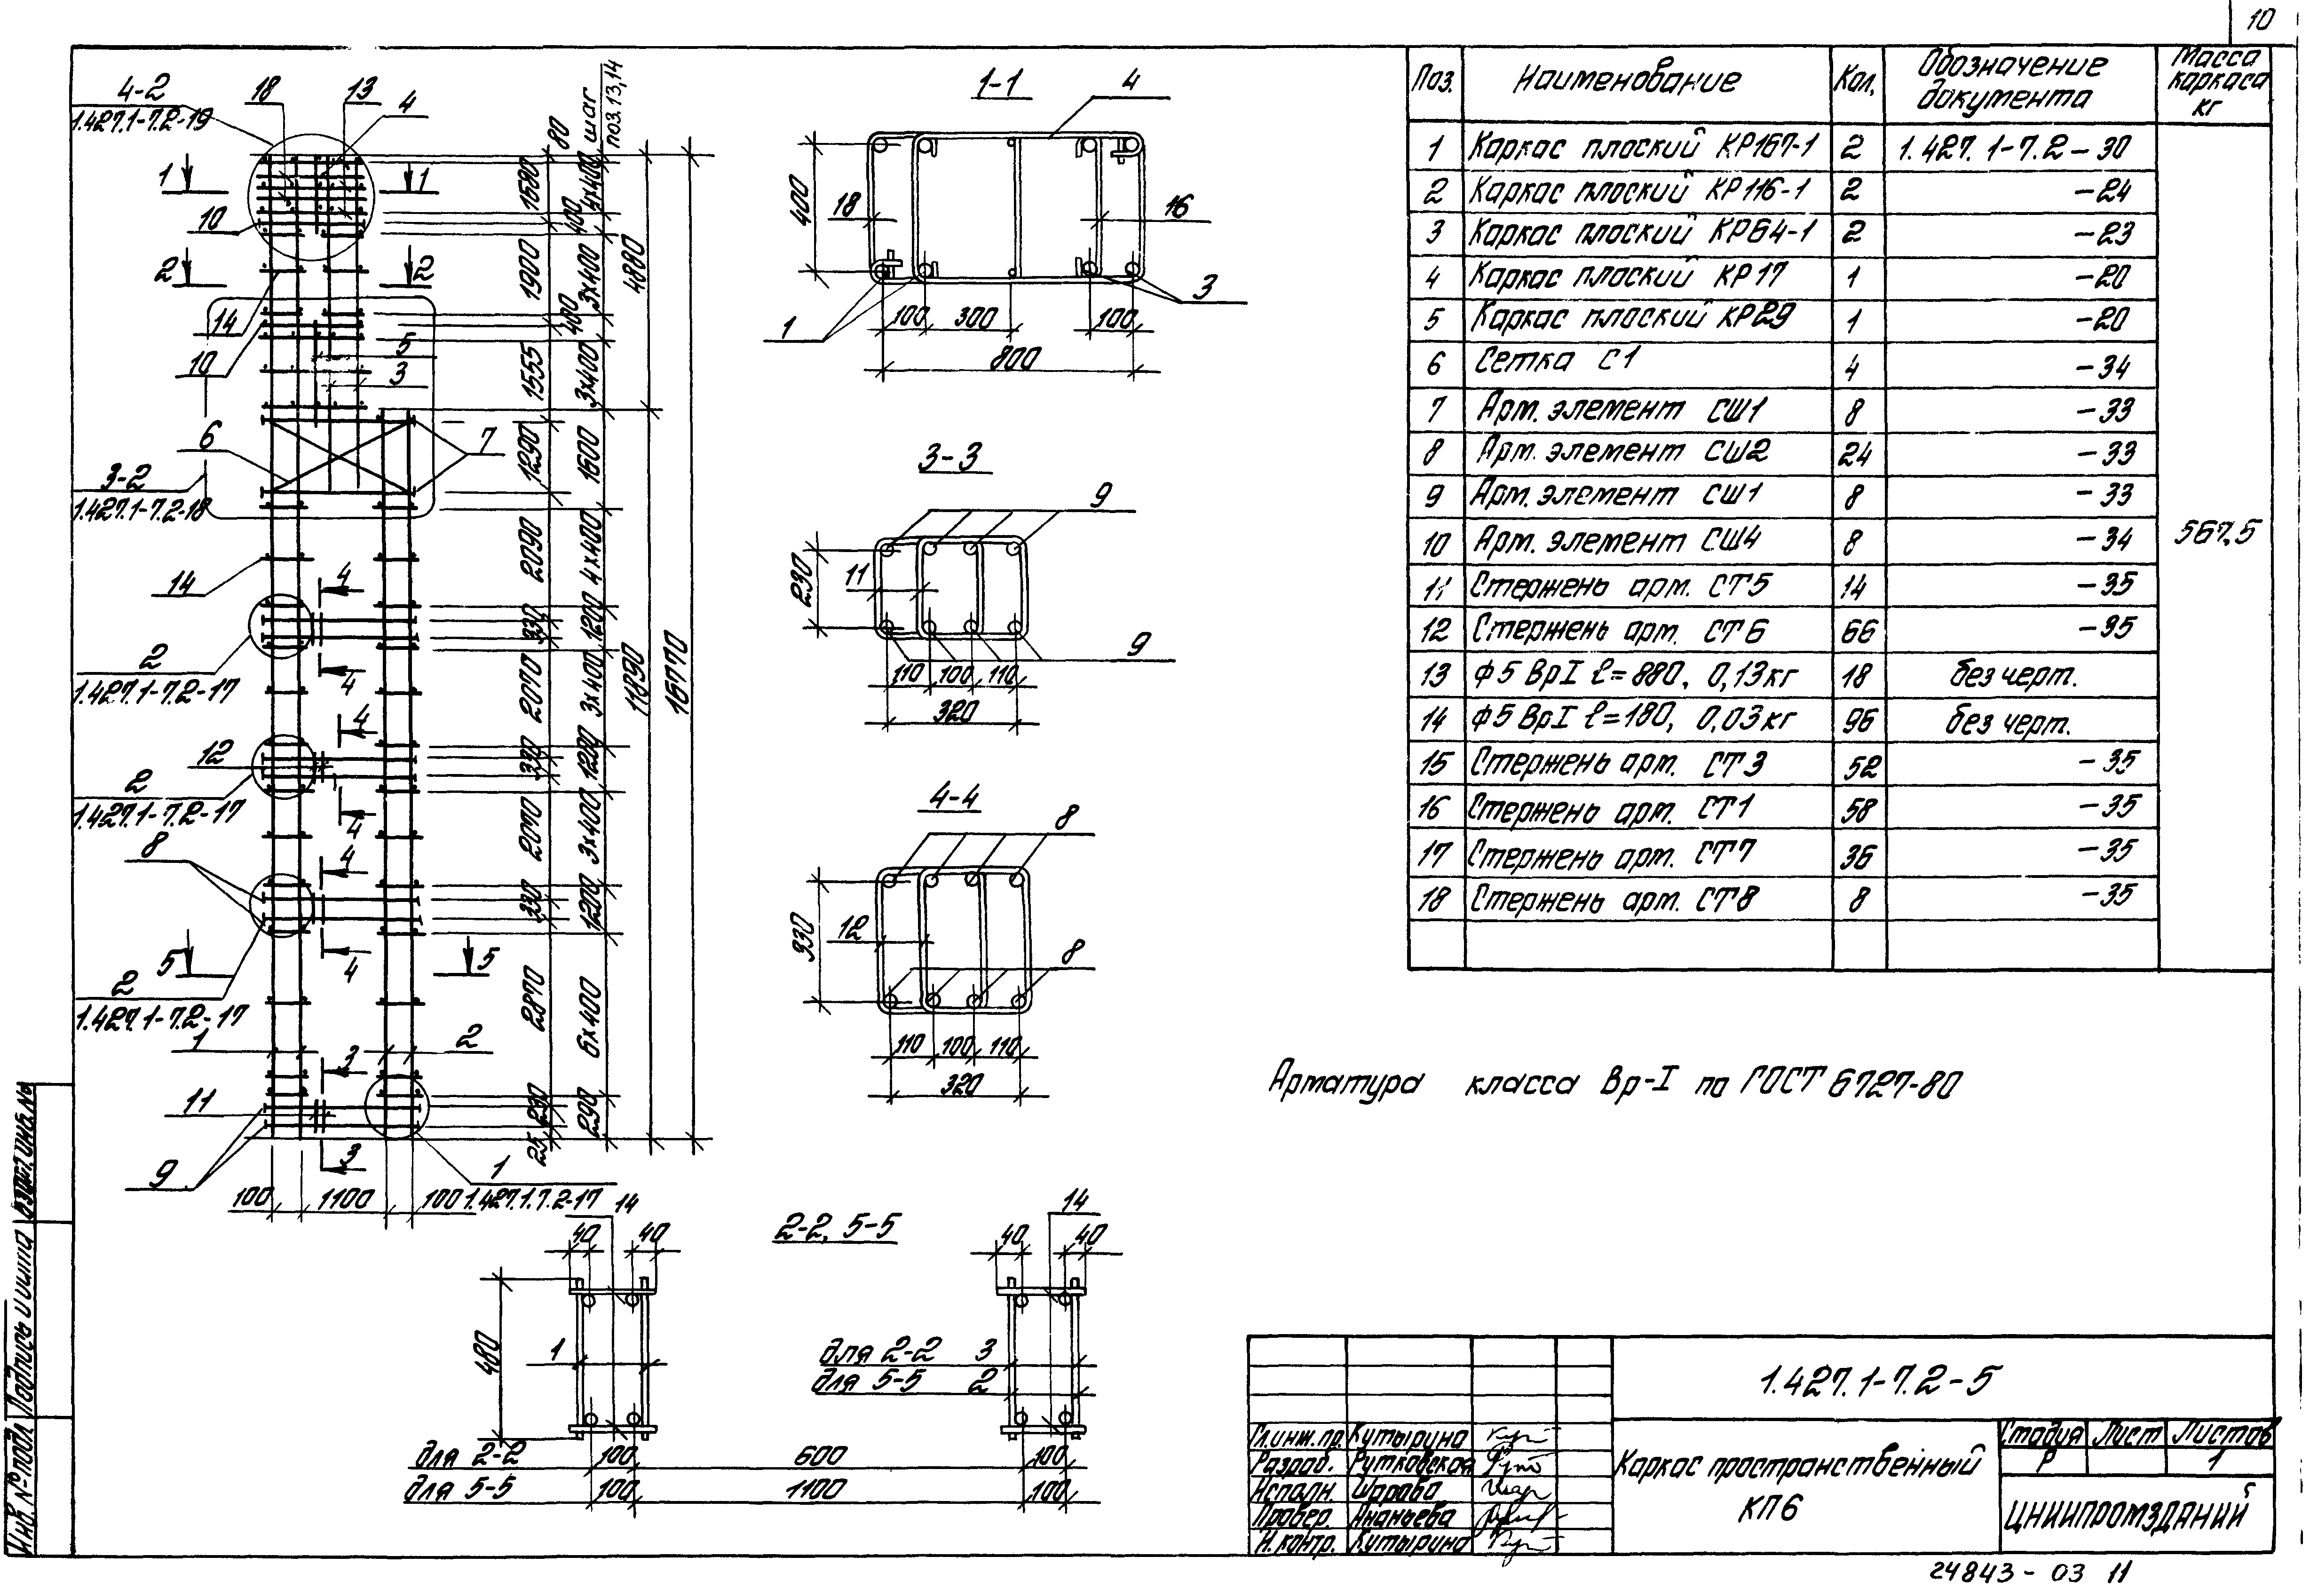 10
4-2
1.427.1-7.2-19
18
13
4
80
шаг поз. 13, 14
1
1
10
1580
4х400
400
2
2
1900
3х400
4880
14
400
10
5
3
1555
3х400
6
7
1290
1600
3-2
1.427.1-7.2-18
2090
4х400
14
4
330
1200
11890
16770
2
1.427.1-7.2-17
4
2070
3х400
4
12
330
1200
2
1.427.1-7.2-17
4
2070
3х400
8
4
330
1200
5
4
5
2
1.427.1-7.2-17
2870
6х400
1
2
3
11
230
290
25
9
3
1
100
1100
100
1.427.1.7.2-17
1-1
4
400
18
16
1
3
100
300
100
800
3-3
9
230
11
9
110
100
110
320
4-4
8
330
12
8
110
100
110
320
2-2, 5-5
14
40
40
14
40
40
480
1
для 2-2 3
для 5-5 2
для 2-2 100 600 100
для 5-5 100 1100 100
Поз. Наименование Кол. Обозначение документа Масса каркаса кг
1 Каркас плоский КР167-1 2 1.427.1-7.2-30
2 Каркас плоский КР116-1 2 -24
3 Каркас плоский КР64-1 2 -23
4 Каркас плоский КР17 1 -20
5 Каркас плоский КР29 1 -20
6 Сетка С1 4 -34
7 Арм. элемент СШ1 8 -33
8 Арм. элемент СШ2 24 -33
9 Арм. элемент СШ1 8 -33
10 Арм. элемент СШ4 8 -34
567,5
11 Стержень арм. СТ5 14 -35
12 Стержень арм. СТ6 66 -35
13 Ф5 ВрI ℓ=880, 0,13кг 18 без черт.
14 Ф5 ВрI ℓ=180, 0,03кг 96 без черт.
15 Стержень арм. СТ3 52 -35
16 Стержень арм. СТ1 58 -35
17 Стержень арм. СТ7 36 -35
18 Стержень арм. СТ8 8 -35
Арматура класса Вр-I по ГОСТ 6727-80
1.427.1-7.2-5
Гл.инж.пр. Кутырина
Разраб. Рутковская
Исполн. Шарова
Провер. Ананьева
Н.контр. Кутырина
Каркас пространственный КП6
Стадия Лист Листов
Р 1
ЦНИИПРОМЗДАНИЙ
Инв. № подл. Подпись и дата Взам. инв. №
24843-03 11